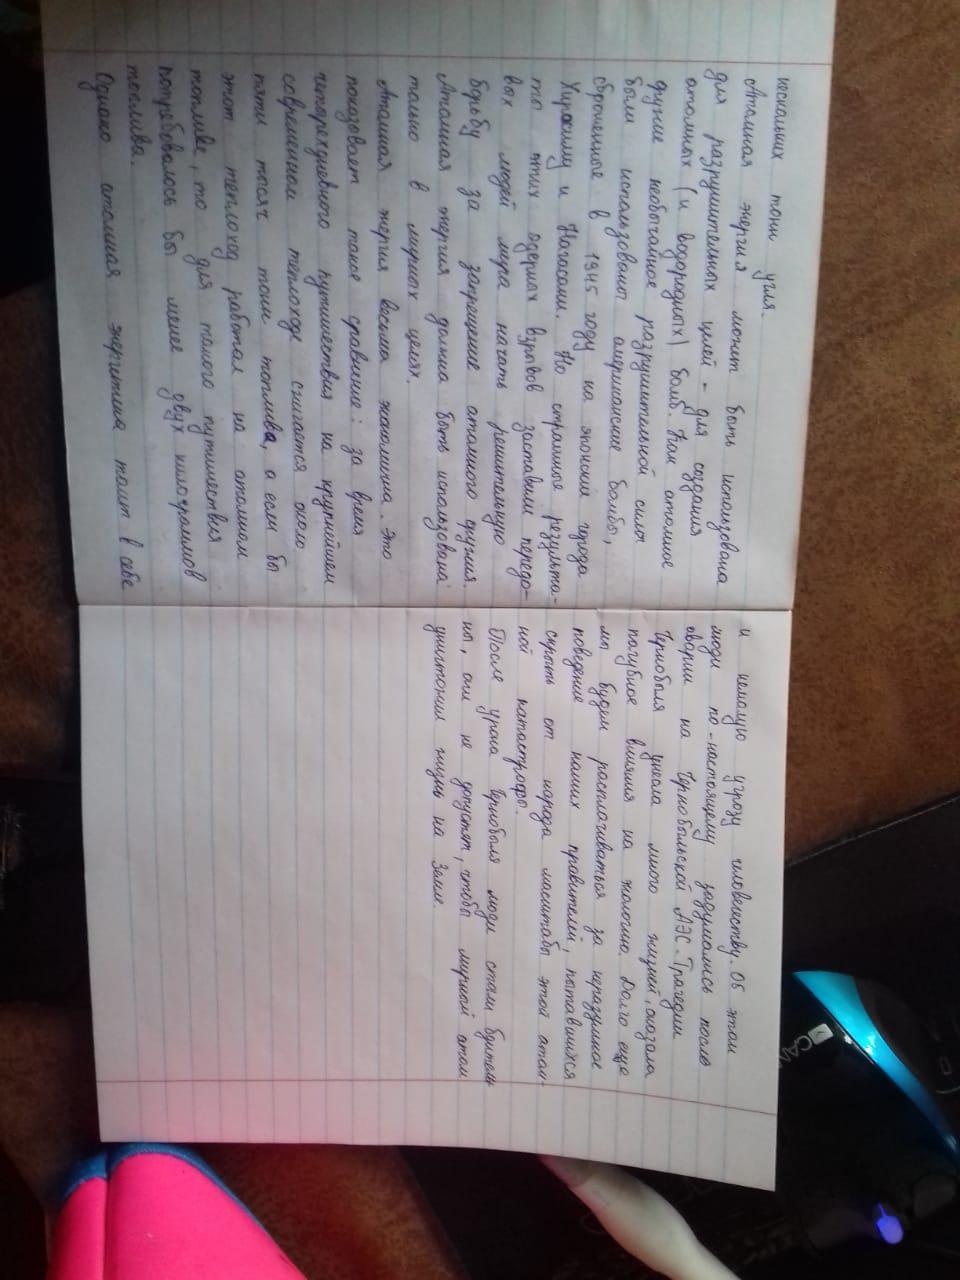 нескольких тонн угля.
Атомная энергия может быть использована
для разрушительных целей - для создания
атомных (и водородных) бомб. Как атомное
оружие необычайное разрушительной силы
были использованы американские бомбы,
сброшенные в 1945 году на японские города
Хиросиму и Нагасаки. Но страшные результа-
ты этих ядерных взрывов заставили передо-
вых людей мира начать решительную
борьбу за запрещение атомного оружия.
Атомная энергия должна быть использована
только в мирных целях.
Атомная энергия весьма экономична. Это
показывает такое сравнение: за время
четырехдневного путешествия на крупнейшем
современном теплоходе сжигается около
пяти тысяч тонн топлива, а если бы
этот теплоход работал на атомном
топливе, то для такого путешествия
потребовалось бы менее двух килограммов
топлива.
Однако атомная энергетика таит в себе
и немалую угрозу человечеству. Об этом
люди по-настоящему задумались после
аварии на Чернобыльской АЭС. Трагедия
Чернобыля унесла много жизней, оказала
пагубное влияния на экологию. Долго еще
мы будем расплачиваться за неразумное
поведение наших правителей, пытавшихся
скрыть от народа масштабы этой атом-
ной катастрофы.
После урока Чернобыля люди стали бдитель
ны, они не допустят, чтобы мирный атом
уничтожил жизнь на Земле.
CAN